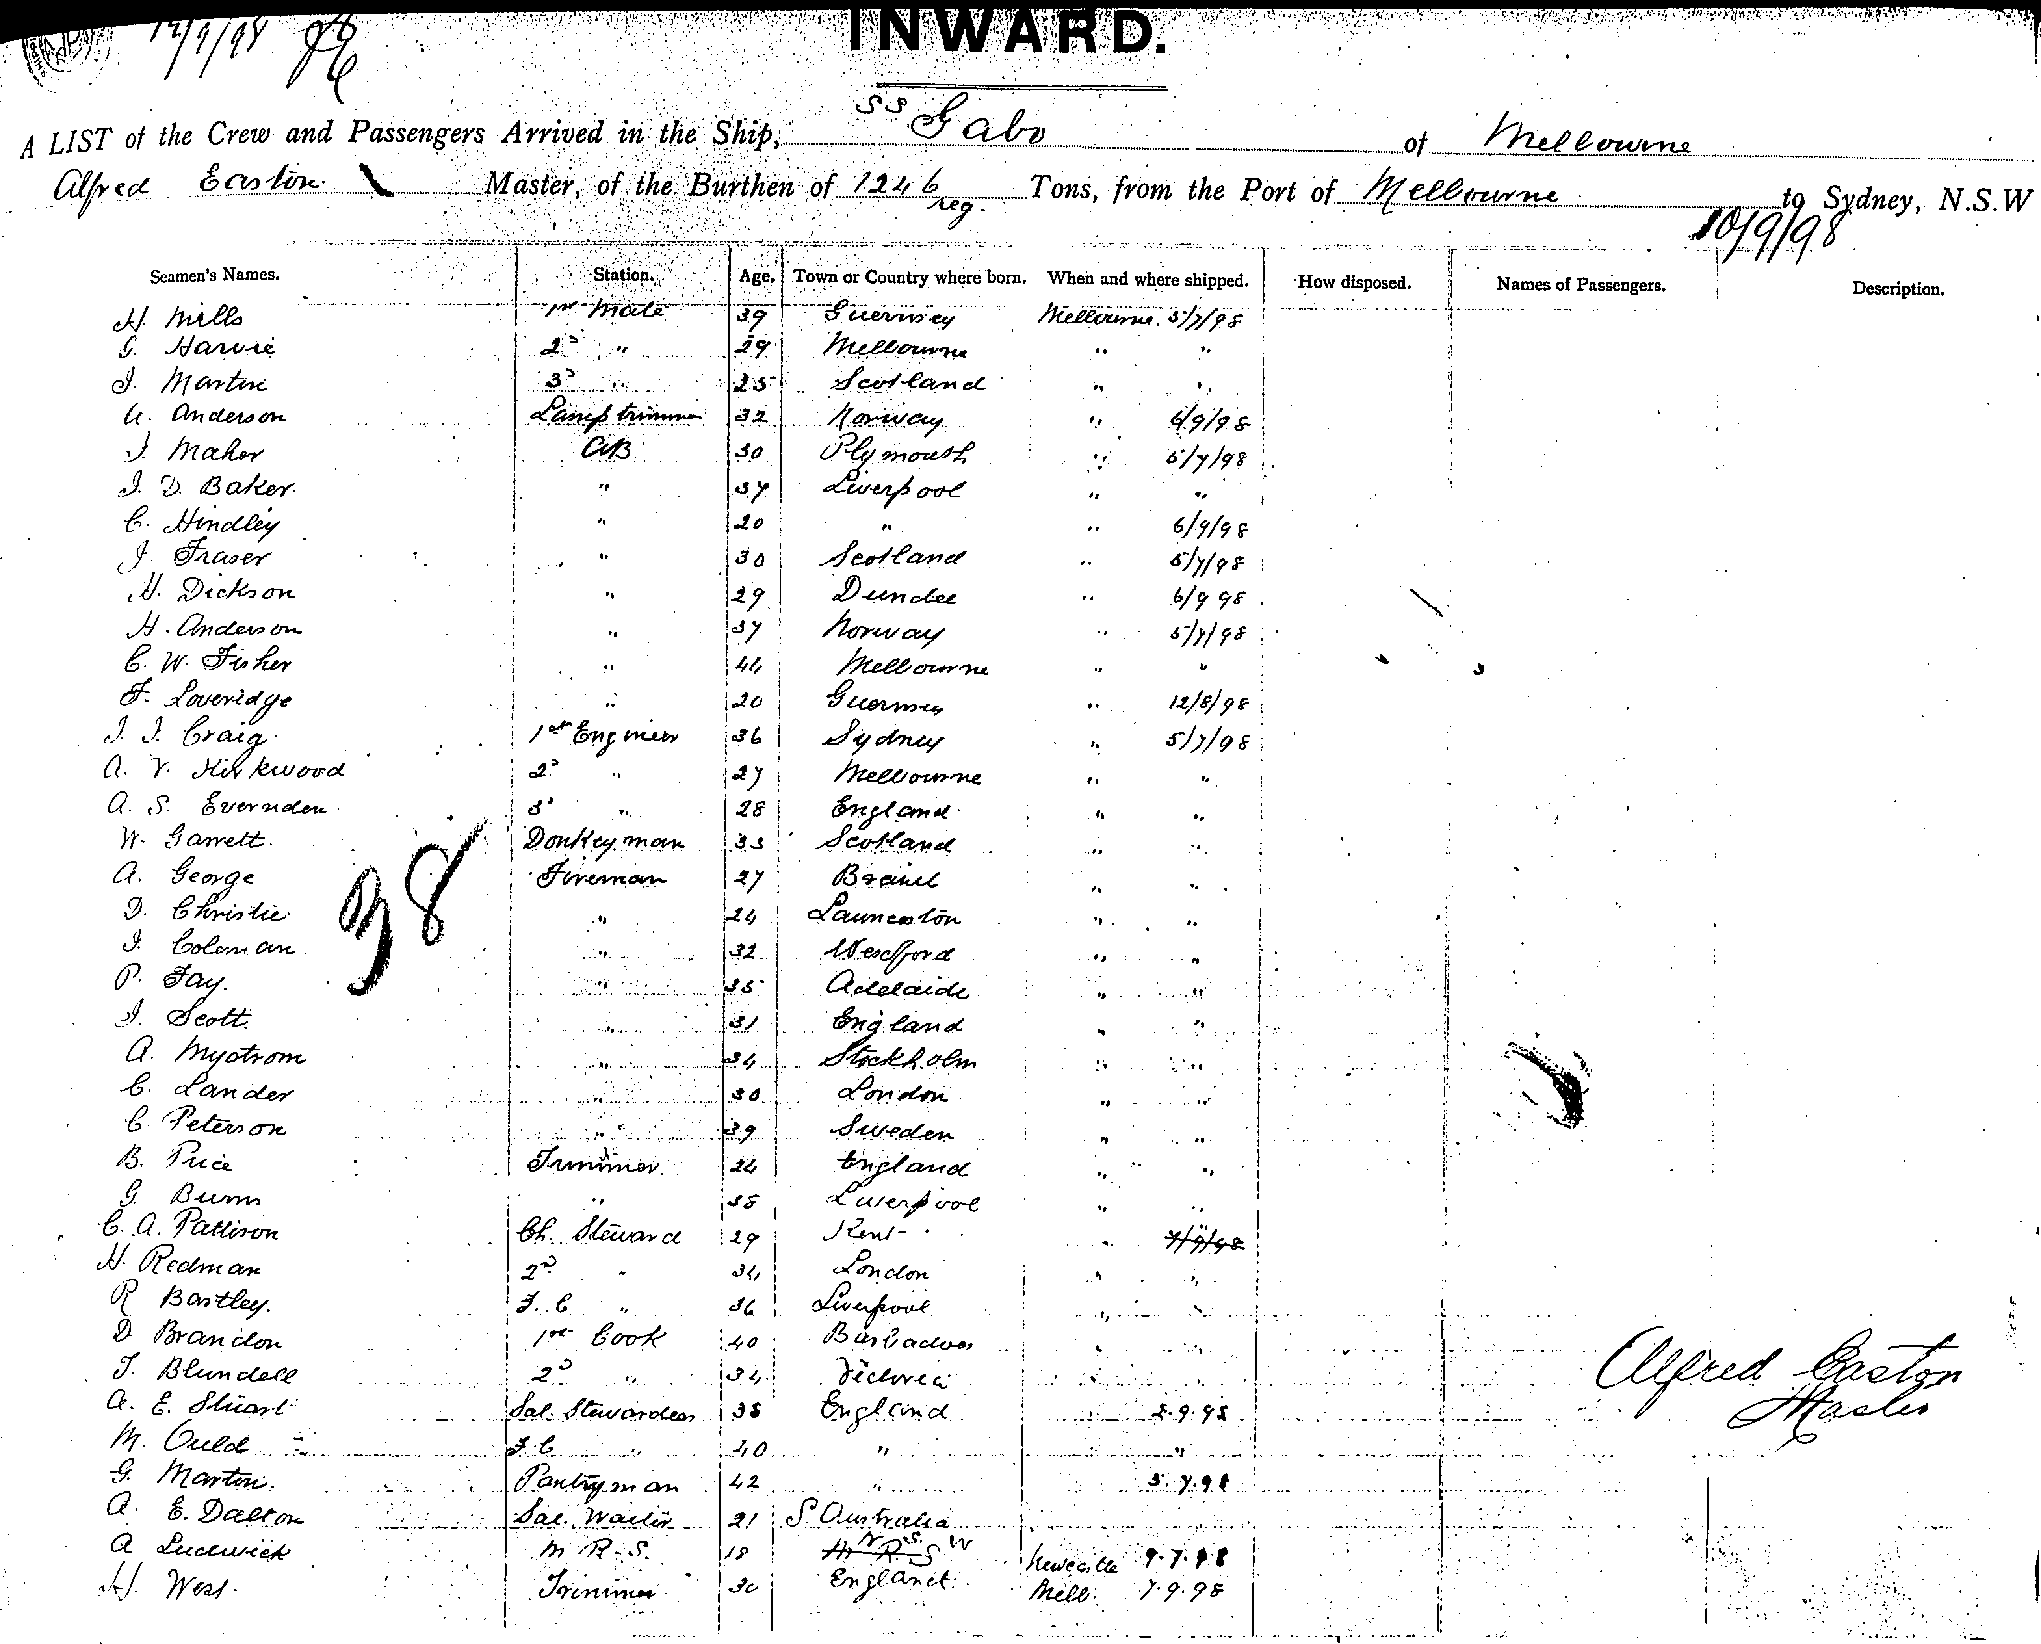 12/9/98
INWARD.
A LIST of the Crew and Passengers Arrived in the Ship, SS Gabo of Melbourne
Alfred Easton Master, of the Burthen of 1246 reg. Tons, from the Port of Melbourne to Sydney, N.S.W
10/9/98
Seamen's Names. Station. Age. Town or Country where born. When and where shipped. How disposed. Names of Passengers. Description.
H. Mills 1st Mate 39 Guernsey Melbourne 5/7/98
G. Harvie 2d " 29 Melbourne " "
J. Martin 3d " 25 Scotland " "
Anderson Lamptrimmer 32 Norway " 6/9/98
J. Maher AB 30 Plymouth " 5/7/98
J. D. Baker " 37 Liverpool " "
C. Hindley " 20 " " 6/9/98
J. Fraser " 30 Scotland " 5/7/98
H. Dickson " 29 Dundee " 6/9 98
H. Anderson " 37 Norway " 5/7/98
C. W. Fisher " 44 Melbourne " "
F. Loveridge " 20 Guernsey " 12/8/98
J. J. Craig 1st Engineer 36 Sydney " 5/7/98
A. V. Kirkwood 2d " 27 Melbourne " "
A. S. Evernden 3d " 28 England " "
W. Garrett Donkeyman 33 Scotland " "
A. George Fireman 27 Brazil " "
D. Christie " 24 Launceston " "
J. Colman " 32 Wexford " "
P. Fay " 35 Adelaide " "
J. Scott " 31 England " "
A. Mystrom " 34 Stockholm " "
C. Lander " 30 London " "
C. Peterson " 39 Sweden " "
38
B. Price Trimmer 24 England " "
G. Burns " 38 Liverpool " "
C. A. Pattison Ch. Steward 29 Kent " 7/9/98
H. Redman 2d " 34 London " "
R Bastley. F. C " 36 Liverpool " "
D Brandon 1st Cook 40 Barbadoes " "
T. Blundell 2d " 34 Victoria " "
A. E. Stuart Sal. Stewardess 38 England " 2.9.98
M. Ould F C " 40 " "
G. Marton. Pantryman 42 " 5.7.98
A. E. Dalton Sal. Waiter 21 S Australia
A Ludwick M R. S. 18 N S W Newcastle 9.7.98
H. West. Trimmer 30 England Melb. 7.9.98
Alfred Easton
Master